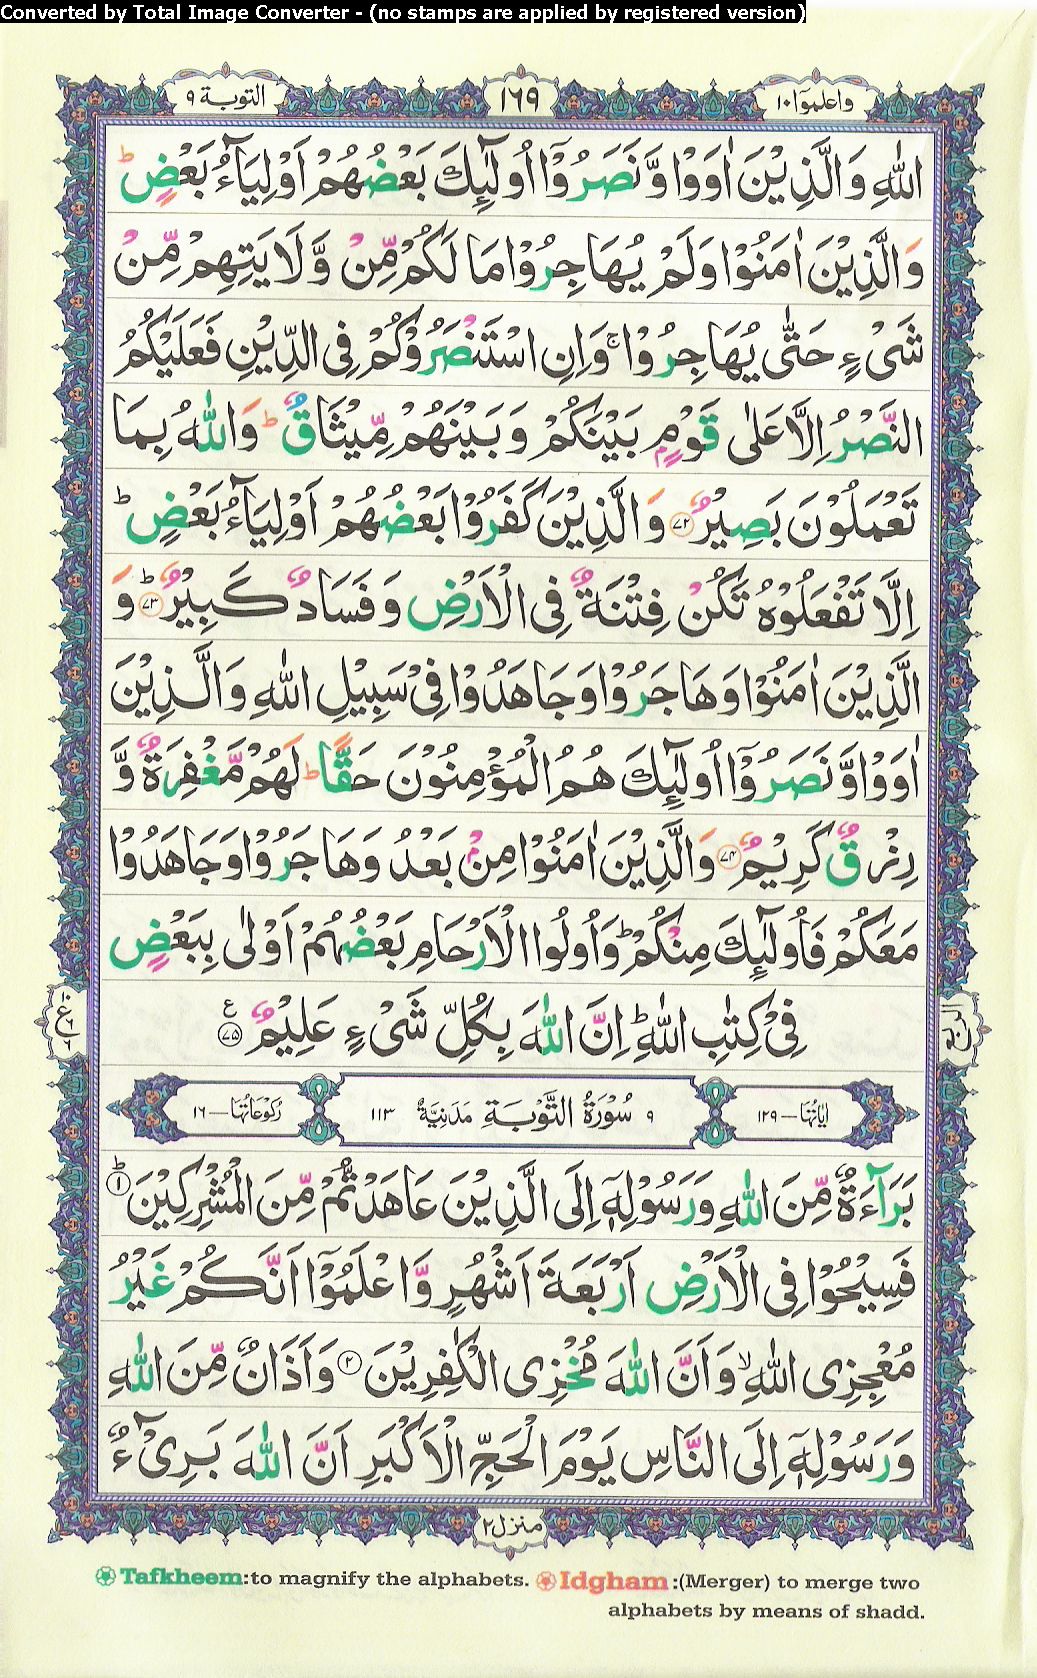 Converted by Total Image Converter - (no stamps are applied by registered version)
واعلموٓا ١٠
١٦٩
التوبة ٩
اللّٰهِ وَالَّذِيْنَ اٰوَوْا وَّنَصَرُوْٓا اُولٰٓئِكَ بَعْضُهُمْ اَوْلِيَآءُ بَعْضٍ ؕ
وَالَّذِيْنَ اٰمَنُوْا وَلَمْ يُهَاجِرُوْا مَا لَكُمْ مِّنْ وَّلَايَتِهِمْ مِّنْ
شَىْءٍ حَتّٰى يُهَاجِرُوْا ۚ وَاِنِ اسْتَنْصَرُوْكُمْ فِى الدِّيْنِ فَعَلَيْكُمُ
النَّصْرُ اِلَّا عَلٰى قَوْمٍۭ بَيْنَكُمْ وَبَيْنَهُمْ مِّيْثَاقٌ ؕ وَاللّٰهُ بِمَا
تَعْمَلُوْنَ بَصِيْرٌ ﴿۷۲﴾ وَالَّذِيْنَ كَفَرُوْا بَعْضُهُمْ اَوْلِيَآءُ بَعْضٍ ؕ
اِلَّا تَفْعَلُوْهُ تَكُنْ فِتْنَةٌ فِى الْاَرْضِ وَفَسَادٌ كَبِيْرٌ ؕ ﴿۷۳﴾ وَ
الَّذِيْنَ اٰمَنُوْا وَهَاجَرُوْا وَجَاهَدُوْا فِىْ سَبِيْلِ اللّٰهِ وَالَّذِيْنَ
اٰوَوْا وَّنَصَرُوْٓا اُولٰٓئِكَ هُمُ الْمُؤْمِنُوْنَ حَقًّا ؕ لَهُمْ مَّغْفِرَةٌ وَّ
رِزْقٌ كَرِيْمٌ ﴿۷۴﴾ وَالَّذِيْنَ اٰمَنُوْا مِنْۢ بَعْدُ وَهَاجَرُوْا وَجَاهَدُوْا
مَعَكُمْ فَاُولٰٓئِكَ مِنْكُمْ ؕ وَاُولُوا الْاَرْحَامِ بَعْضُهُمْ اَوْلٰى بِبَعْضٍ
فِىْ كِتٰبِ اللّٰهِ ؕ اِنَّ اللّٰهَ بِكُلِّ شَىْءٍ عَلِيْمٌ ﴿۷۵﴾ ع
اٰيَاتُهَا – ١٢٩
٩ سُوْرَةُ التَّوْبَةِ مَدَنِيَّةٌ ١١٣
رُكُوْعَاتُهَا – ١٦
بَرَآءَةٌ مِّنَ اللّٰهِ وَرَسُوْلِهٖٓ اِلَى الَّذِيْنَ عَاهَدْتُّمْ مِّنَ الْمُشْرِكِيْنَ ؕ ﴿۱﴾
فَسِيْحُوْا فِى الْاَرْضِ اَرْبَعَةَ اَشْهُرٍ وَّاعْلَمُوْٓا اَنَّكُمْ غَيْرُ
مُعْجِزِى اللّٰهِ ۙ وَاَنَّ اللّٰهَ مُخْزِى الْكٰفِرِيْنَ ﴿۲﴾ وَاَذَانٌ مِّنَ اللّٰهِ
وَرَسُوْلِهٖٓ اِلَى النَّاسِ يَوْمَ الْحَجِّ الْاَكْبَرِ اَنَّ اللّٰهَ بَرِىْٓءٌ
منزل ٢
Tafkheem:to magnify the alphabets. Idgham:(Merger) to merge two
alphabets by means of shadd.